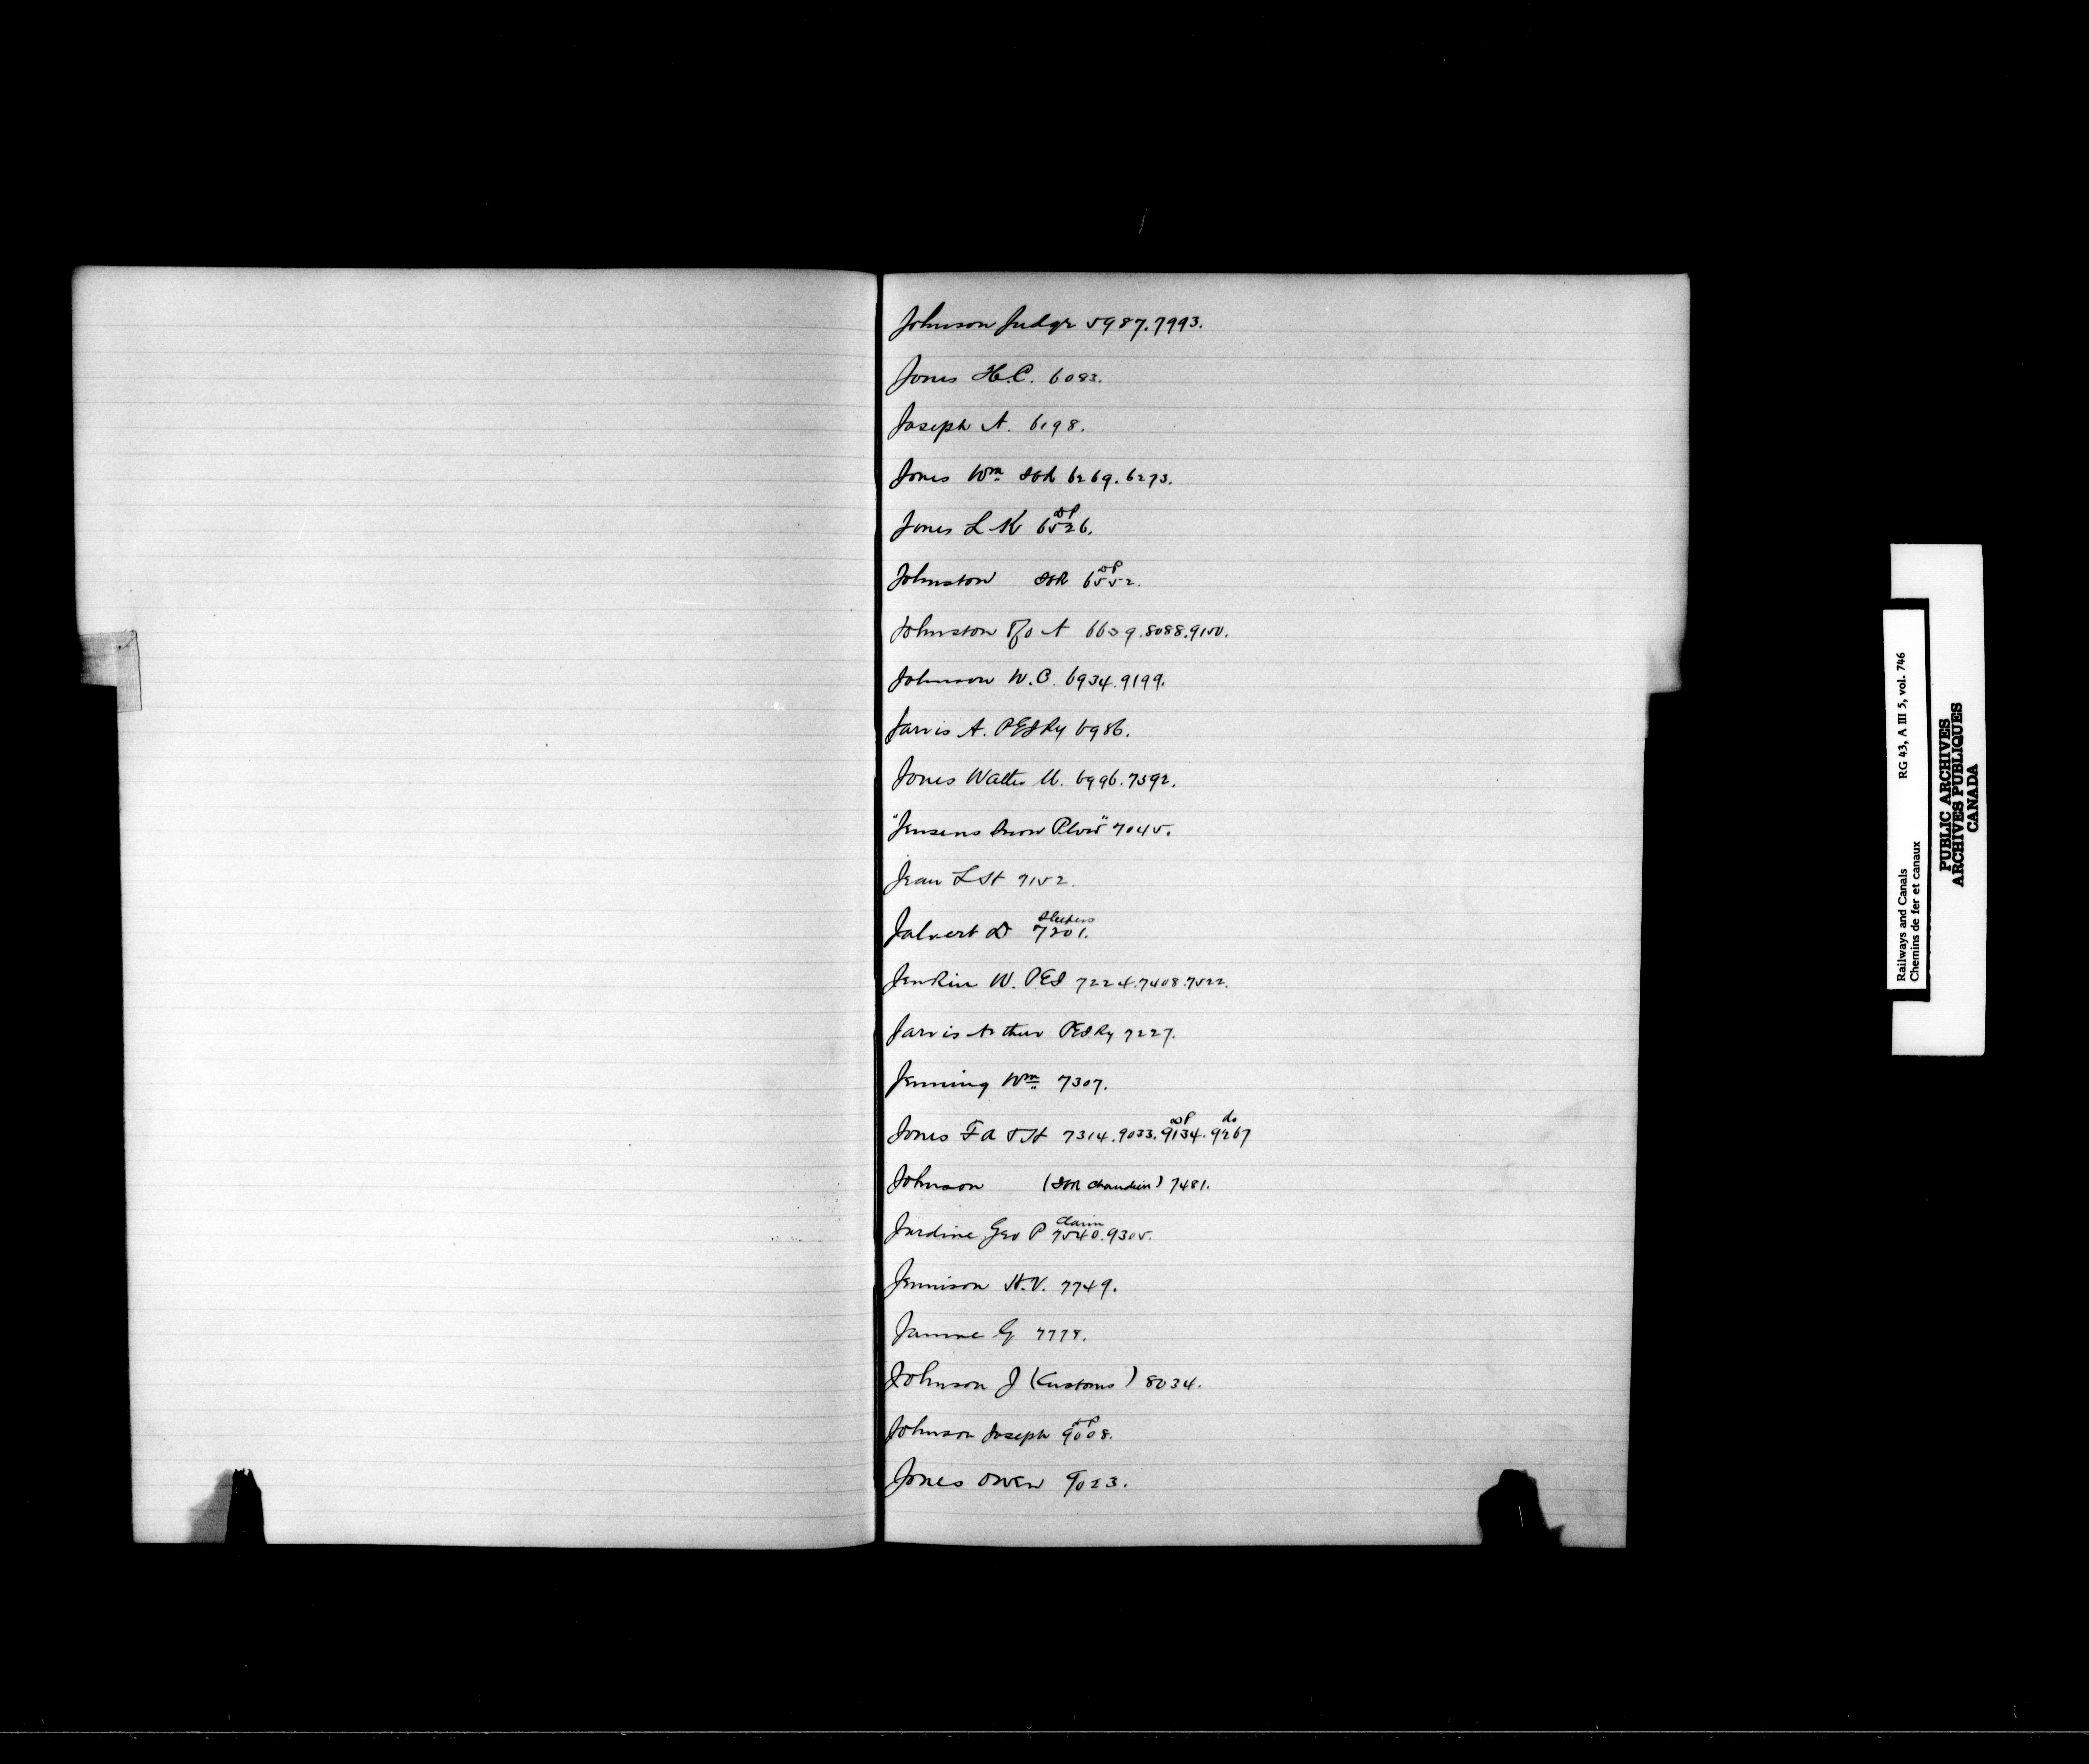 Johnson Judge 5987.7993.
Jones H.C. 6083.
Joseph A. 6198.
Jones Wm ICR 6269.6273.
DP
Jones L K 6526.
DP
Johnston ICR 6552.
Johnston A 6639.8088.9150.
Johnson W.C. 6934.9199.
Jarvis A. PEIRy 6986.
Jones Walter U. 6996.7592.
"Jensens Snow Plow" 7045.
Jean L St 7152.
Sleepers
Jalvert D 7201.
Jenkin W. PEI 7224.7408.7522.
Jarvis Arthur PEIRy 7227.
Jenning Wm 7307.
DP do
Jones F a & H 7314.9033.9134.9267
Johnson (ICR Chaudiere) 7481.
Claim
Jardine Geo P 7540.9305.
Jennison H.V. 7749.
G 7778.
Johnson J (Customs) 8034.
DP
Johnson Joseph 9008.
Jones Owen 9023.
Railways and Canals RG 43, A III 5, vol. 746
Chemins de fer et canaux
PUBLIC ARCHIVES
ARCHIVES PUBLIQUES
CANADA